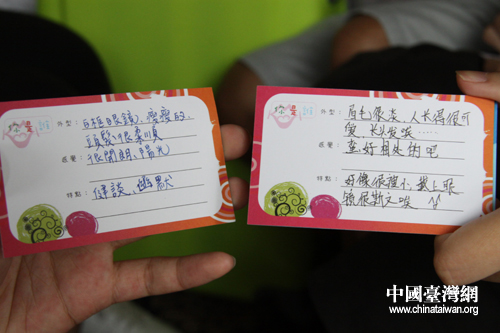 外型：白框眼鏡、瘦瘦的
頭髮很柔順
感覺：很開朗、陽光
特點：健談、幽默
外型：眉毛很淡 人长得很可
愛 长发唉……
感覺：蛮好相处的吧
特點：好像很瘦小，戴上眼
镜很斯文唉
中國臺灣網
www.chinataiwan.org